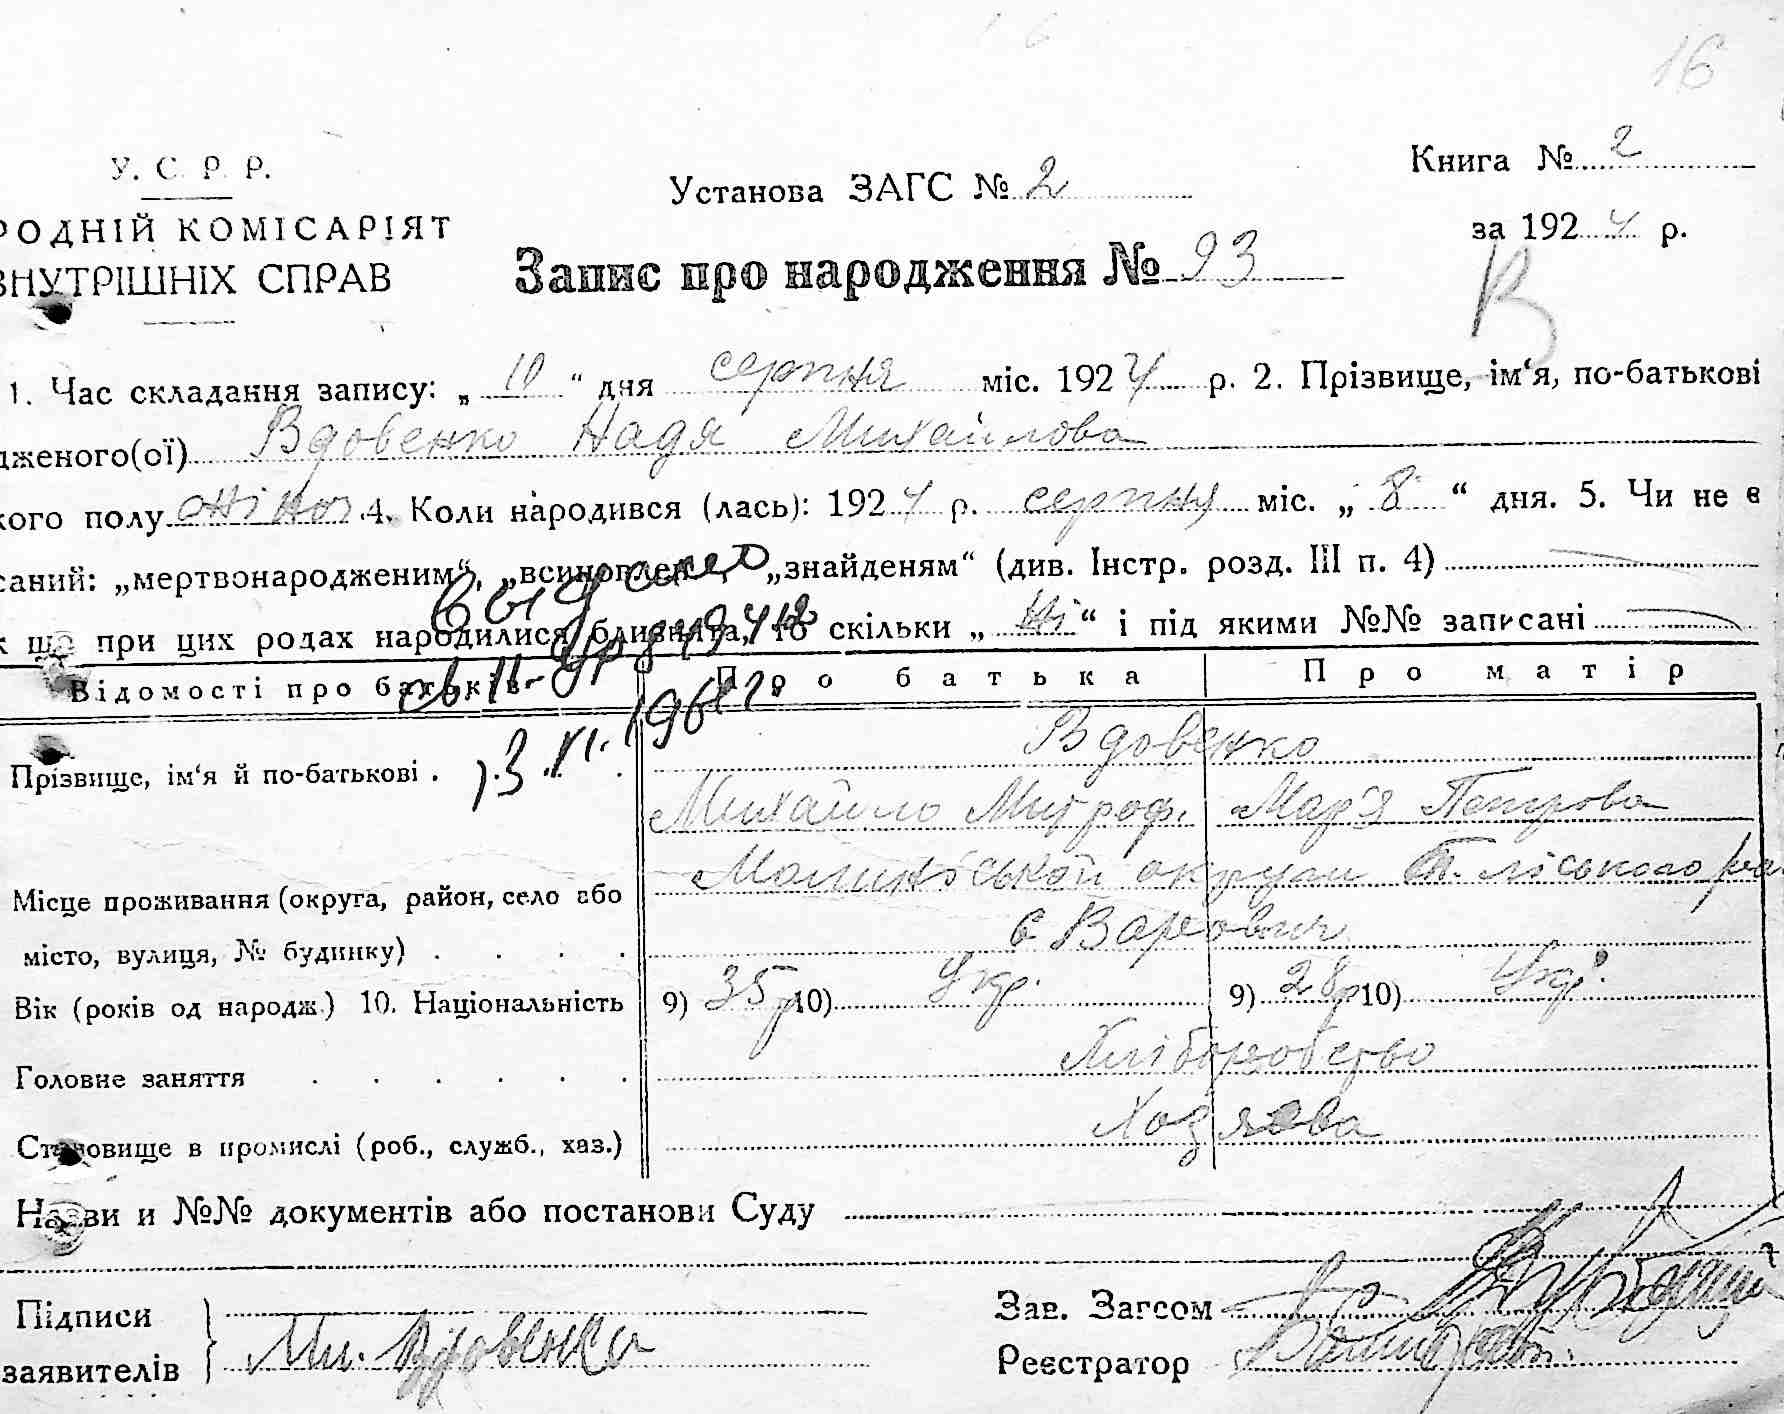 16
У. С. Р. Р.
РОДНІЙ КОМІСАРІЯТ
ВНУТРІШНІХ СПРАВ
Установа ЗАГС № 2
Книга № 2
за 1924 р.
Запис про народження № 93
В
1. Час складання запису: „ 10 “ дня серпня міс. 1924 р. 2. Прізвище, ім‘я, по-батькові
дженого(ої) Вдовенко Надя Михайлова
кого полу жіноч. 4. Коли народився (лась): 1924 р. серпня міс. „ 8 “ дня. 5. Чи не є
саний: „мертвонародженим“, „всиновлен „знайденям“ (див. Інстр. розд. III п. 4)
к що при цих родах народилися близнята, то скільки „ Ні “ і під якими №№ записані
Выдано
св II-
13.VI.1961г.
Відомості про батьків
Про батька
Про матір
Прізвище, ім‘я й по-батькові
Вдовенко
Михайло Митроф.
Мар'я Петрова
Місце проживання (округа, район, село або
місто, вулиця, № будинку)
округи
с Варовичі
Вік (років од народж.) 10. Національність
9) 35 р 10) Укр.
9) 28 р 10) Укр.
Головне заняття
Хліборобство
Становище в промислі (роб., служб., хаз.)
Хозяєва
Назви и №№ документів або постанови Суду
Підписи
заявителів
Ми. Вдовенко
Зав. Загсом
Реєстратор